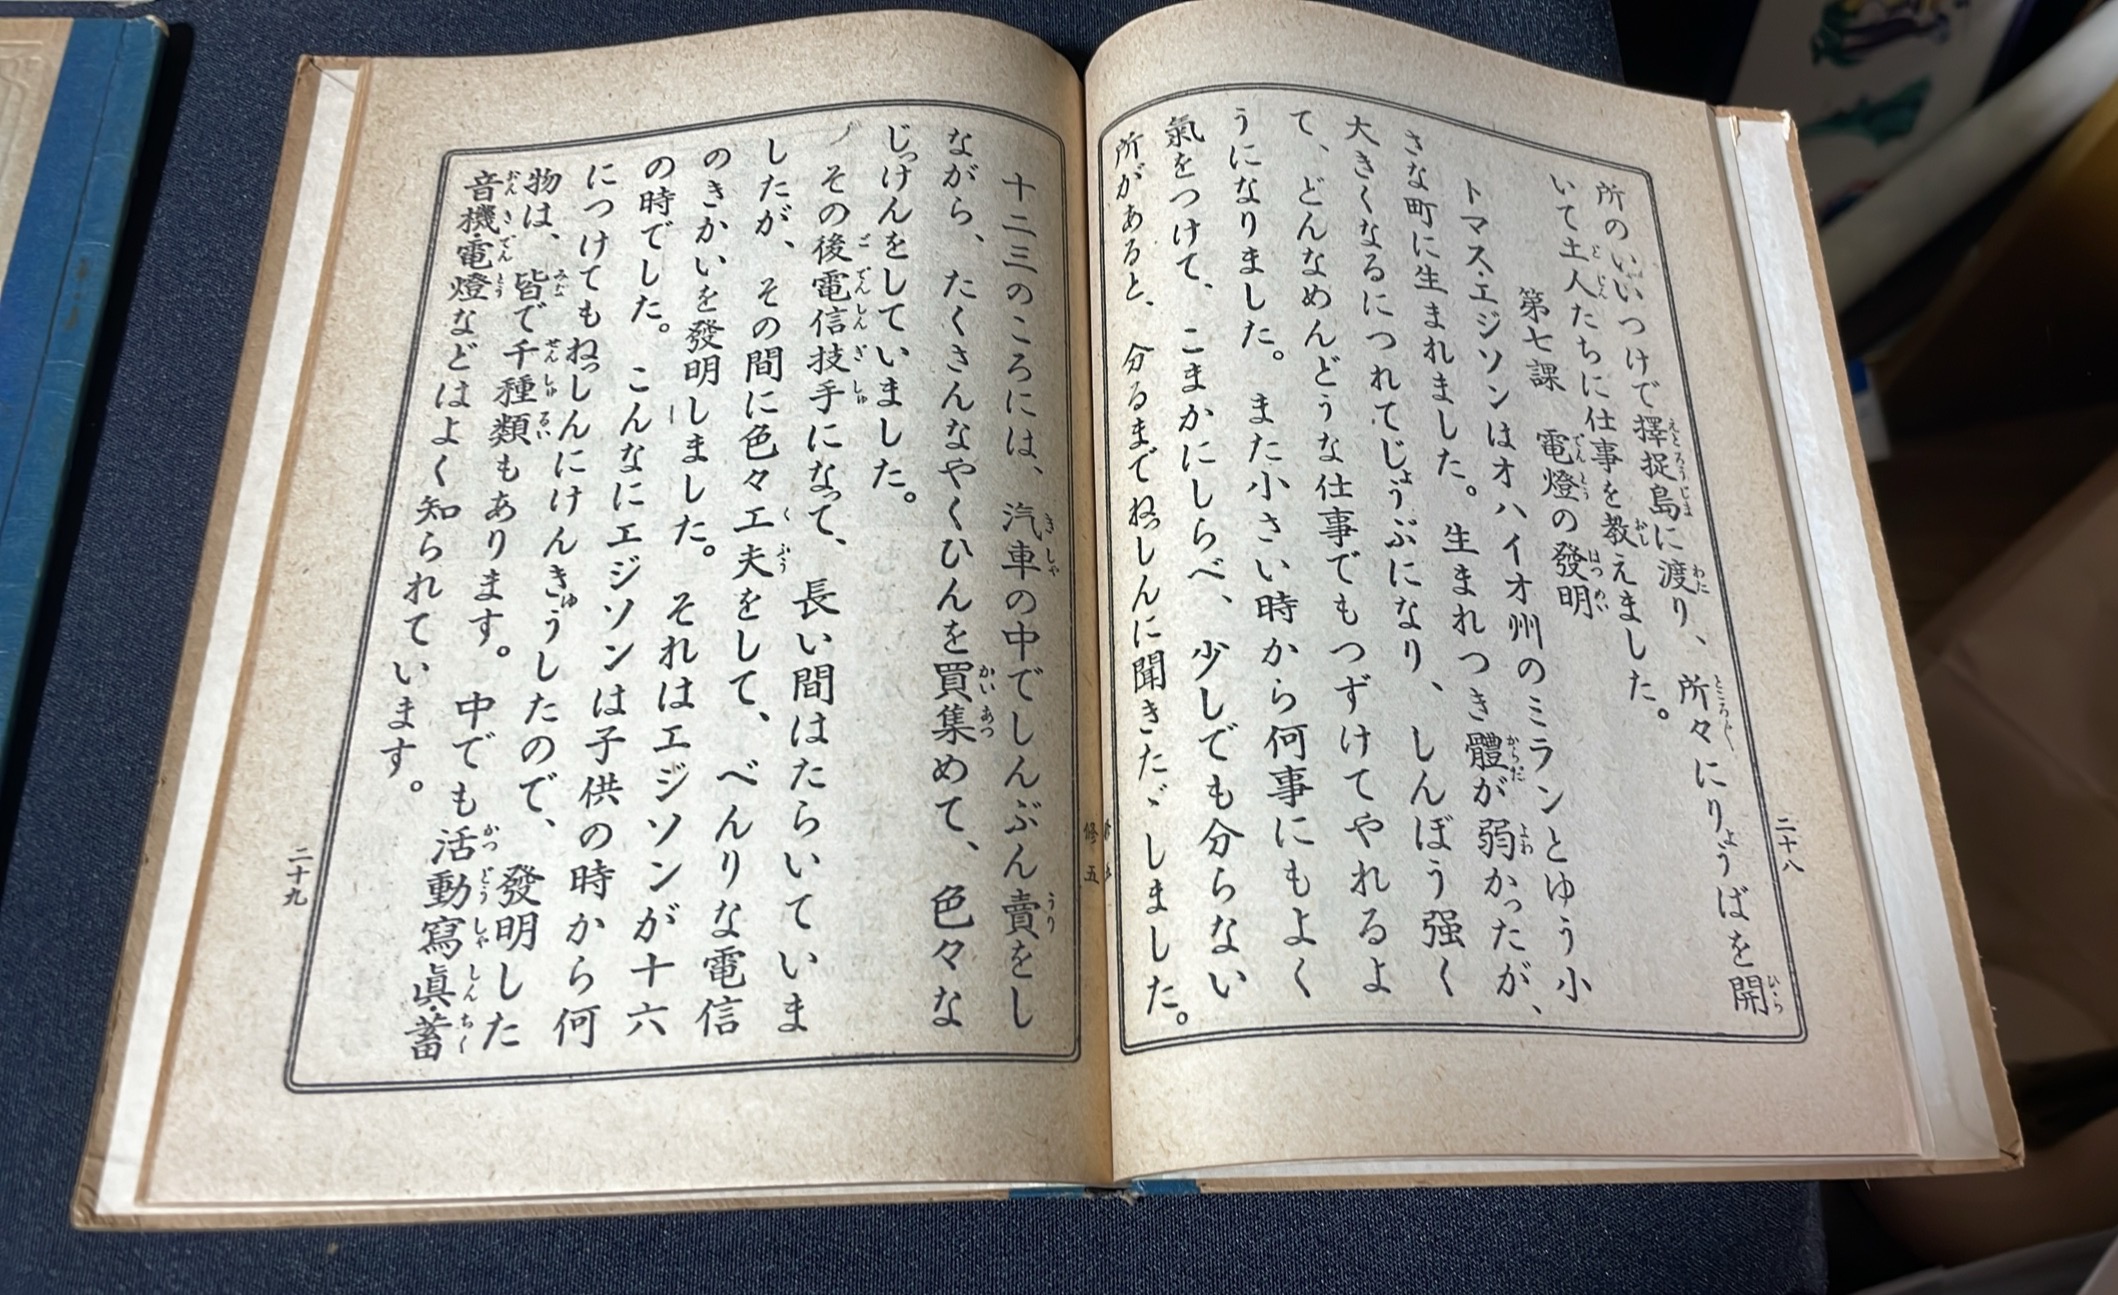 二十八
所のいいつけで擇捉島に渡り、所々にりょうばを開
いて土人たちに仕事を教えました。
第七課 電燈の發明
トマス・エジソンはオハイオ州のミランとゆう小
さな町に生まれました。生まれつき體が弱かったが、
大きくなるにつれてじょうぶになり、しんぼう強く
て、どんなめんどうな仕事でもつずけてやれるよ
うになりました。また小さい時から何事にもよく
氣をつけて、こまかにしらべ、少しでも分らない
所があると、分るまでねっしんに聞きたゞしました。
修五
十二三のころには、汽車の中でしんぶん賣をし
ながら、たくさんなやくひんを買集めて、色々な
じっけんをしていました。
その後電信技手になって、長い間はたらいていま
したが、その間に色々工夫をして、べんりな電信
のきかいを發明しました。それはエジソンが十六
の時でした。こんなにエジソンは子供の時から何
につけてもねっしんにけんきゅうしたので、發明した
物は、皆で千種類もあります。中でも活動寫眞・蓄
音機・電燈などはよく知られています。
二十九